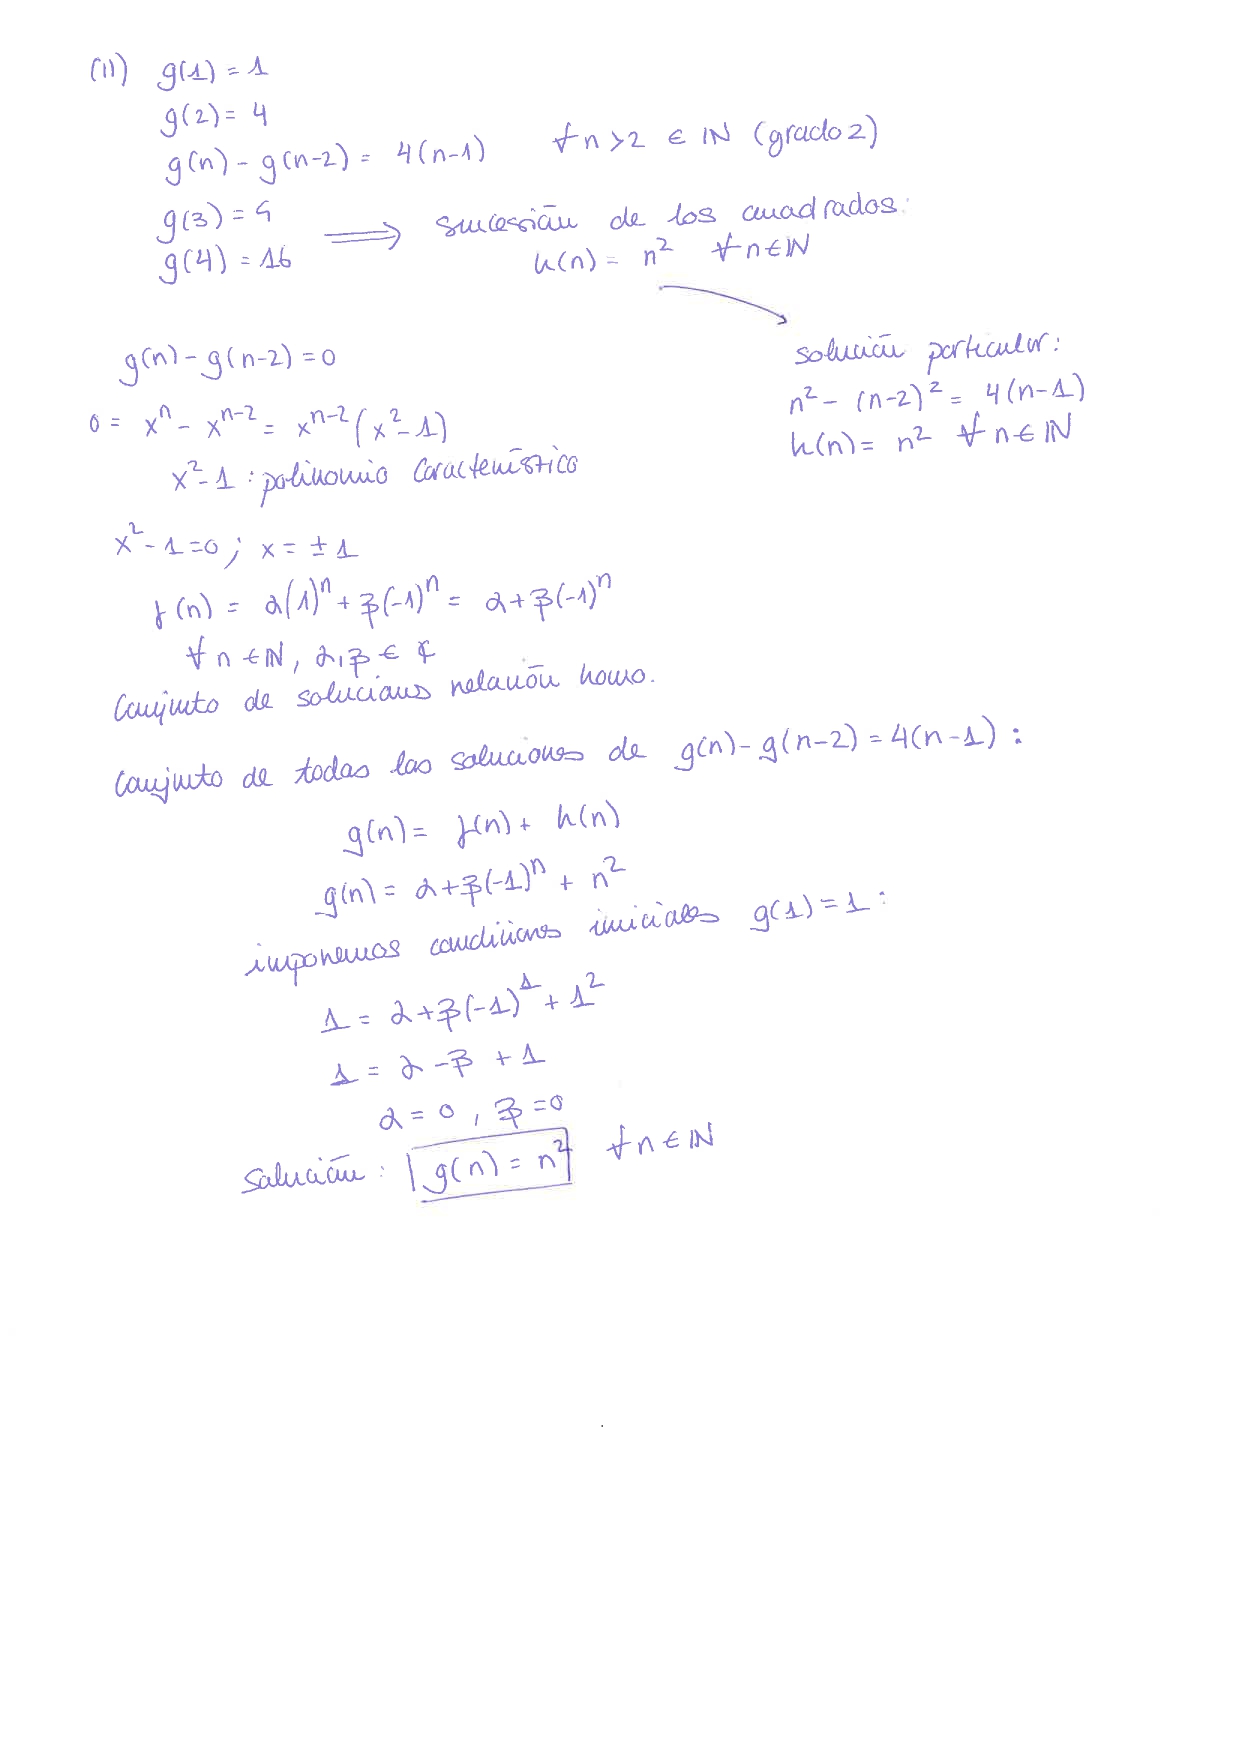 (11) g(1) = 1
g(2) = 4
g(n) - g(n-2) = 4(n-1) ∀n>2 ∈ ℕ (grado 2)
g(3) = 9
g(4) = 16 ⟹ sucesión de los cuadrados:
h(n) = n² ∀n∈ℕ
solución particular:
n² - (n-2)² = 4(n-1)
h(n) = n² ∀n∈ℕ
g(n) - g(n-2) = 0
0 = xⁿ - xⁿ⁻² = xⁿ⁻²(x²-1)
x²-1 : polinomio característico
x²-1=0 ; x = ±1
f(n) = α(1)ⁿ + β(-1)ⁿ = α+β(-1)ⁿ
∀n∈ℕ, α,β ∈ ℂ
Conjunto de soluciones relación homo.
Conjunto de todas las soluciones de g(n)-g(n-2) = 4(n-1) :
g(n) = f(n) + h(n)
g(n) = α+β(-1)ⁿ + n²
imponemos condiciones iniciales g(1) = 1 :
1 = α+β(-1)¹ + 1²
1 = α-β + 1
α = 0 , β = 0
Solución : g(n) = n² ∀n∈ℕ